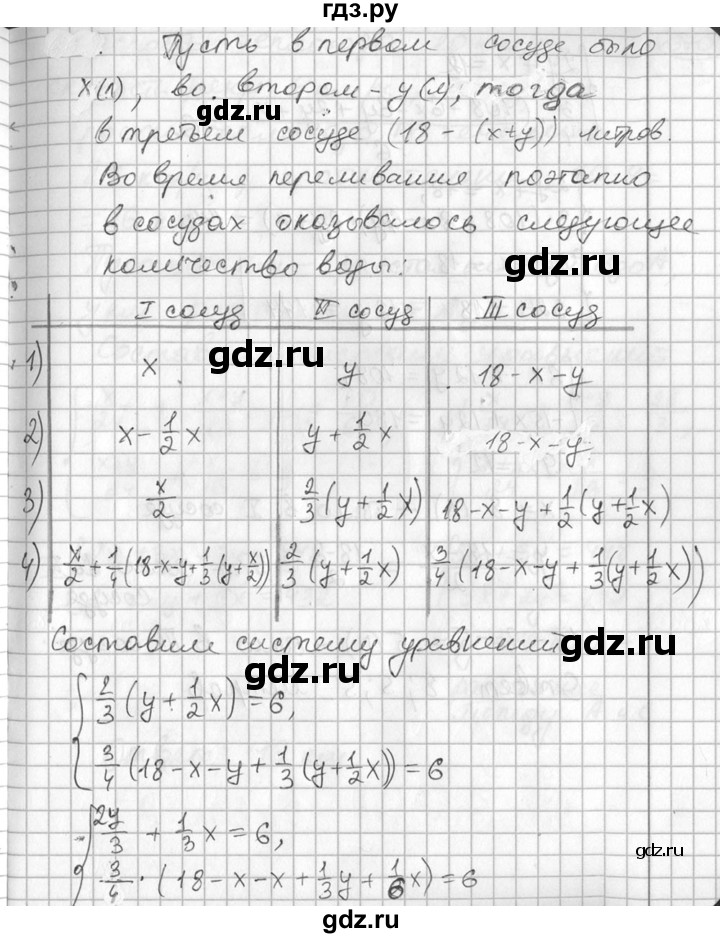 гдз.ру
Пусть в первом сосуде было
x(л), во втором - y(л), тогда
в третьем сосуде (18 - (x+y)) литров.
Во время переливания поэтапно
в сосудах оказывалось следующее
количество воды:
I сосуд II сосуд III сосуд
1) x y 18-x-y
2) x - 1/2 x y + 1/2 x 18-x-y
3) x/2 2/3 (y + 1/2 x) 18-x-y + 1/2 (y + 1/2 x)
4) x/2 + 1/4 (18-x-y + 1/3 (y + x/2)) 2/3 (y + 1/2 x) 3/4 (18-x-y + 1/3 (y + 1/2 x))
Составим систему уравнений
{ 2/3 (y + 1/2 x) = 6,
3/4 (18-x-y + 1/3 (y + 1/2 x)) = 6
{ 2y/3 + 1/3 x = 6,
3/4 · (18 - x - x + 1/3 y + 1/6 x) = 6
gdz.ru
gdz.ru
gdz.ru
gdz.ru
gdz.ru
gdz.ru
gdz.ru
gdz.ru
gdz.ru
gdz.ru